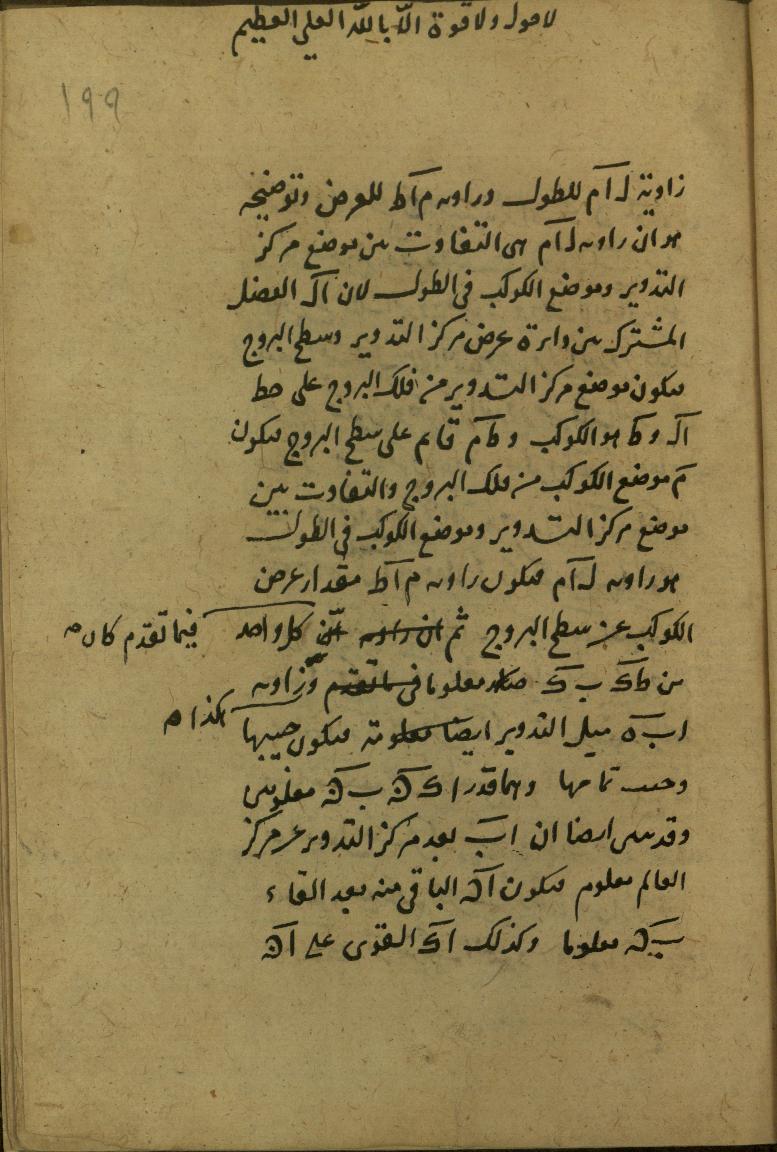 لا حول ولا قوة الا بالله العلي العظيم
١٩٩
زاوية ل ا م للطول وزاويه م ا ط للعرض وتوضيحه
هو ان زاويه ل ا م هى التفاوت بين موضع مركز
التدوير وموضع الكوكب فى الطول لان ا ك الفصل
المشترك بين دايرة عرض مركز التدوير وسطح البروج
فيكون موضع مركز التدوير من فلك البروج على خط
ا ك و ط هو الكوكب و ط م قايم على سطح البروج فيكون
م موضع الكوكب من فلك البروج والتفاوت بين
موضع مركز التدوير وموضع الكوكب فى الطول
هو زاويه ل ا م فيكون زاويه م ا ط مقدار عرض
الكوكب عن سطح البروج ثم ان زاويه انّ كل واحد
فيما تقدم كان
من ط ك ب ك صار معلوما فى ما تقدم وزاويه
ا ب ه ميل التدوير ايضا معلومة فيكون جيبها
هكذا
وجيب تمامها وهما قدرا ك ه ب ه معلومين
وقد تبين ايضا ان ا ب بعد مركز التدوير عن مركز
العالم معلوم فيكون ا ه الباقى منه بعد القاء
ب ه معلوما وكذلك ا ك القوى على ا ه